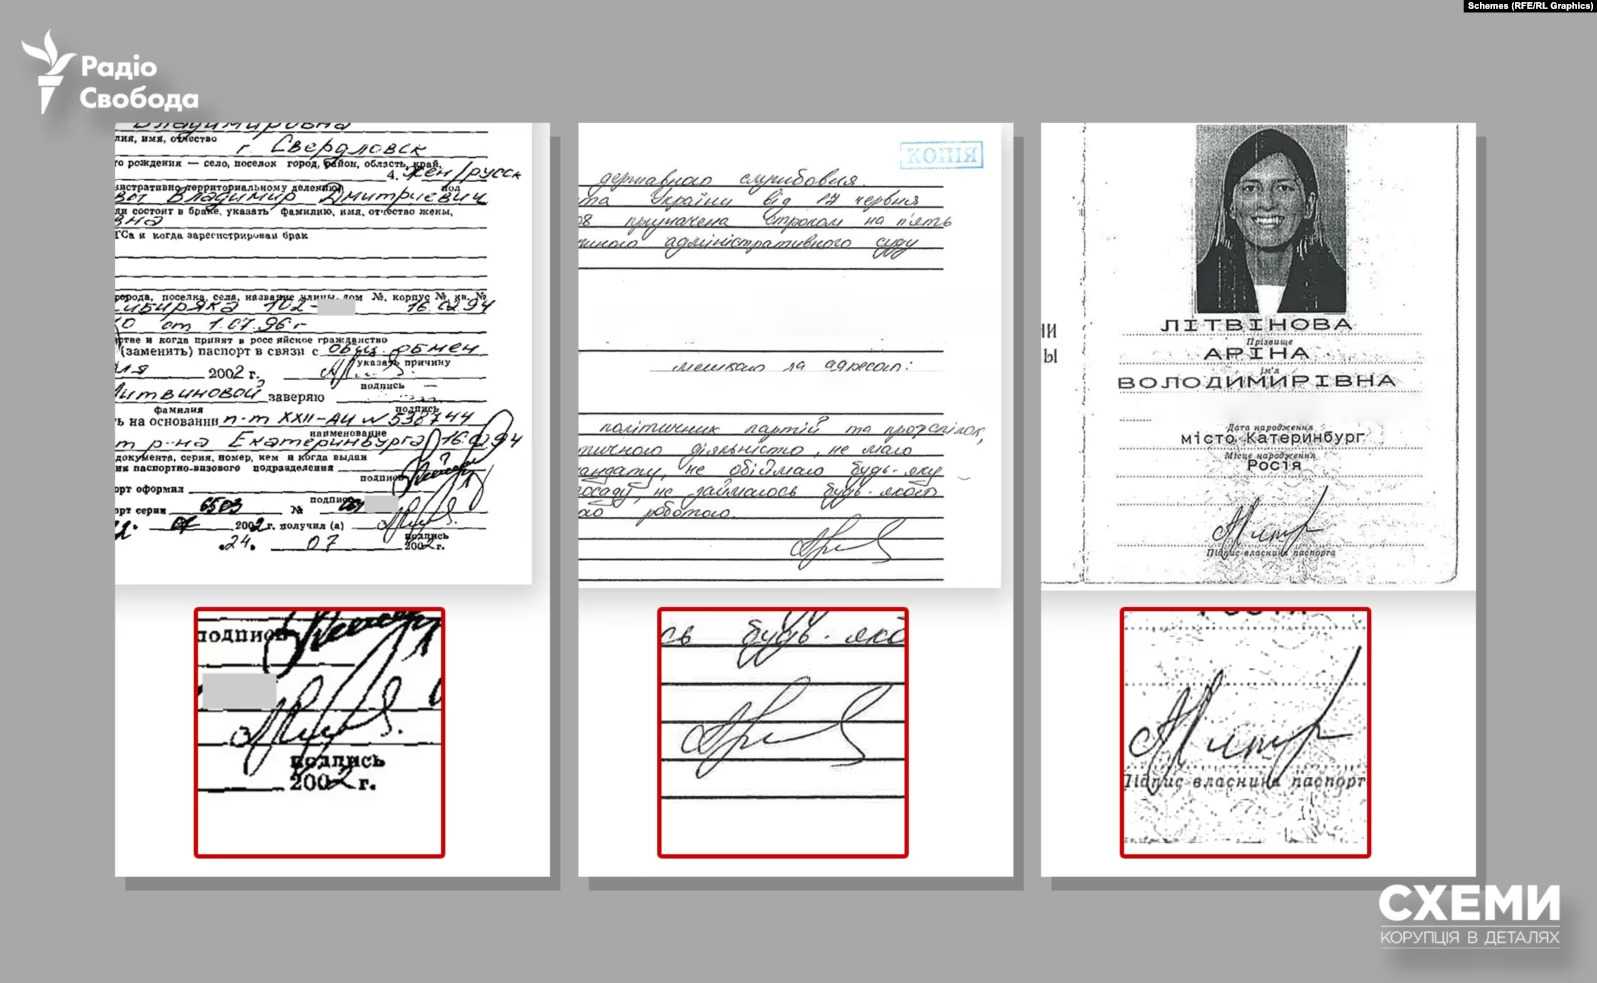 Schemes (RFE/RL Graphics)
Радіо
Свобода
Владимировна
лия, имя, отчество
г. Свердловск
го рождения — село, поселок город, район, область, край,
4. жен/русск
министративно-территориальному делению пол
Владимир Дмитриевич
ли состоит в браке, указать фамилию, имя, отчество жены,
вна
ГСа и когда зарегистрирован брак
города, поселка, села, название улицы, дом №, корпус №, кв. №
сибиряка 102- 16.02.94
от 1.07.96 г
стве и когда принят в российское гражданство
(заменить) паспорт в связи с общ. обмен
указать причину
2002 г.
подпись
Литвиновой заверяю
фамилия подпись
ь на основании п-т XXII-АИ № 538744
наименование
т р-на Екатеринбурга 16.02.94
документа, серия, номер, кем и когда выдан
ия паспортно-визового подразделения
подпись
орт оформил
подпись
орт серии 6503 №
07 2002 г. получил (а)
подпись
24. 07 2002 г.
КОПІЯ
державного службовця.
та України від 17 червня
призначена строком на п'ять
адміністративного суду
мешкаю за адресою:
політичних партій та профспілок,
діяльністю, не маю
мандату, не обіймаю будь-яку
посаду, не займаюсь будь-якою
роботою.
ни
ы
ЛІТВІНОВА
Прізвище
АРІНА
ім'я
ВОЛОДИМИРІВНА
Дата народження
місто Катеринбург
Місце народження
Росія
Підпис власника паспорта
подпись
подпись
2002 г.
сь будь-яко
Росія
Підпис власника паспорт
СХЕМИ
КОРУПЦІЯ В ДЕТАЛЯХ